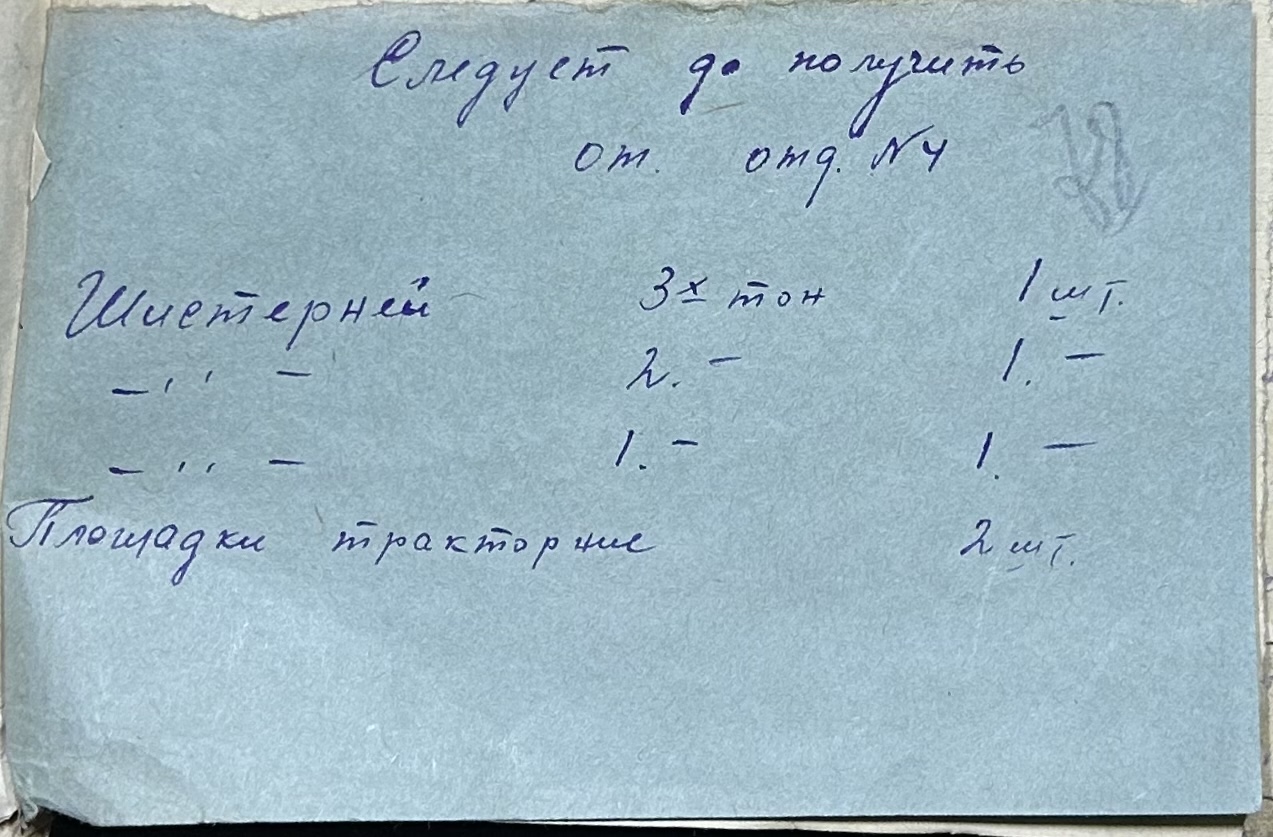 Следует до получить
от. отд. N 4
Шистерней 3х тон 1 шт.
–''– 2. – 1. –
–''– 1. – 1. –
Площадки тракторние 2 шт.